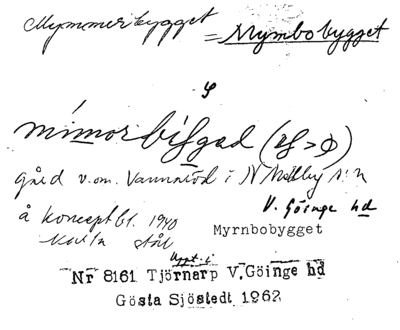 Mymmerbygget
= Myrnbobygget
gård v.om. Vannaröd i N Mellby s:n
V. Göinge hd
å konceptbl. 1940
Myrnbobygget
Uppt. i
Nr 8161 Tjörnarp V. Göinge hd
Gösta Sjöstedt 1962